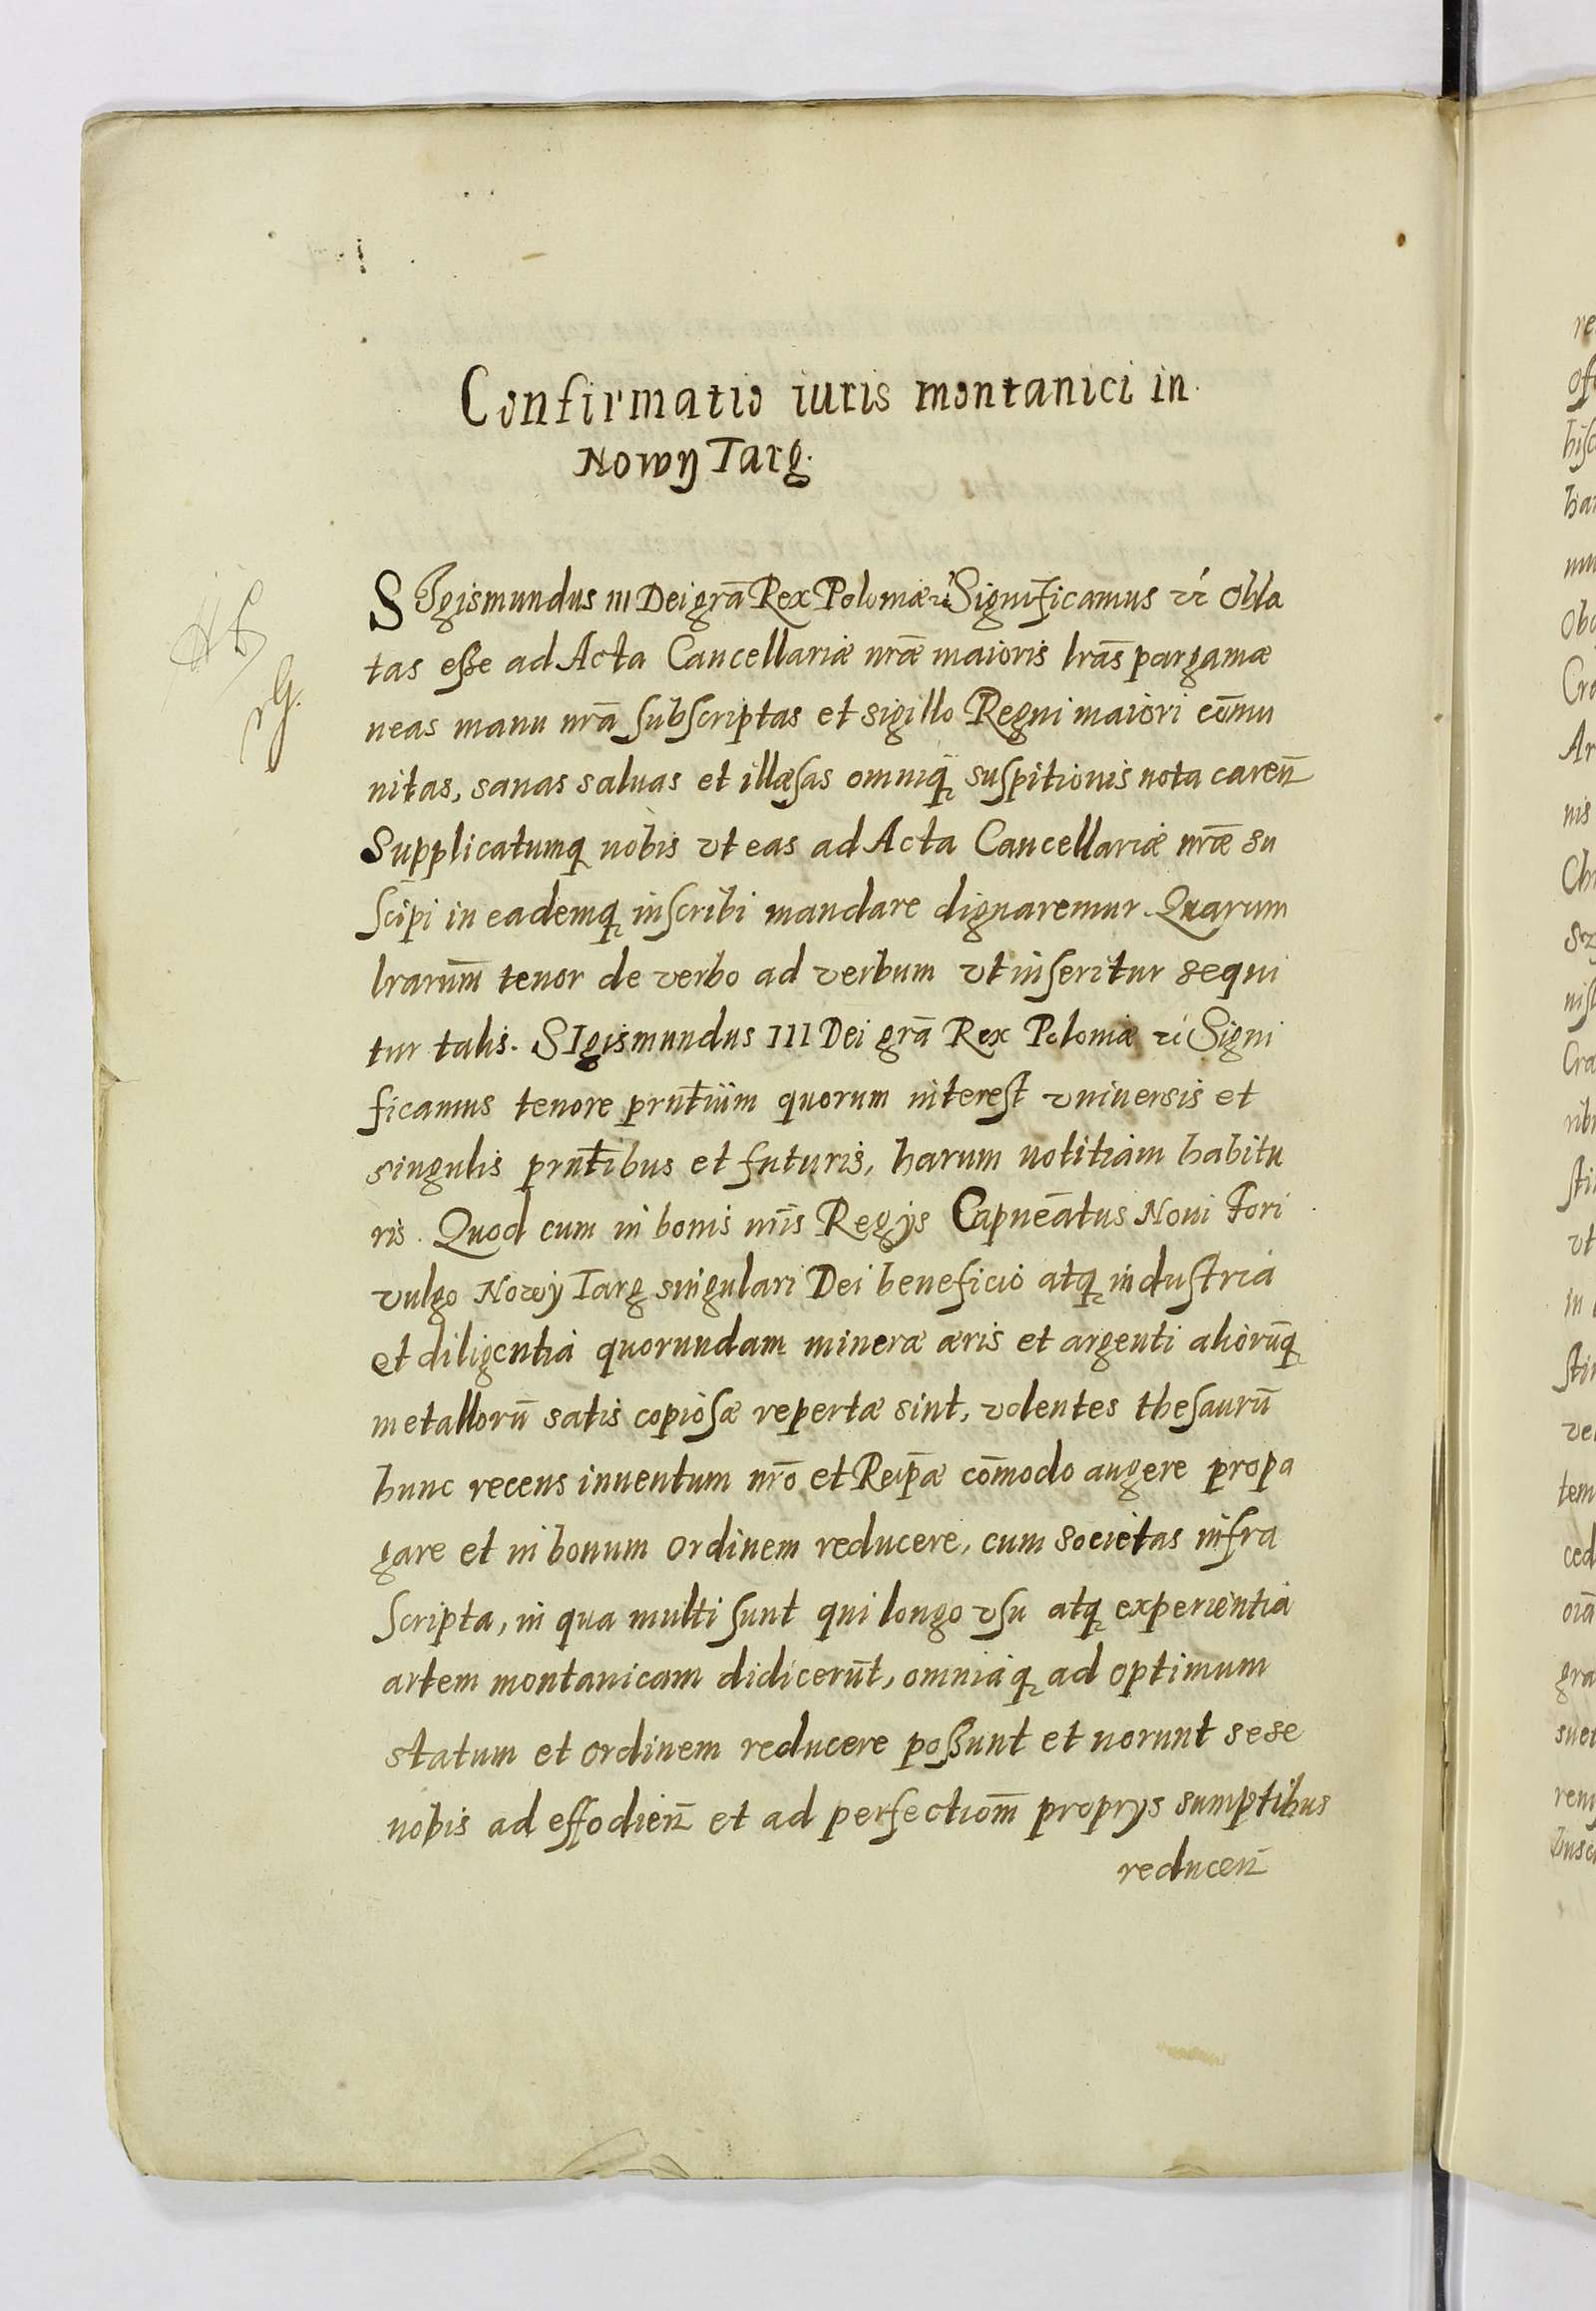 Confirmatio iuris montanici in
Nowy Targ.
SIgismundus III Dei grã Rex Poloniæ Significamus Obla
tas esse ad Acta Cancellariæ nr̃æ maioris lrãs pargamæ
neas manu nr̃a subscriptas et sigillo Regni maiori com̃u
nitas, sanas saluas et illæsas omniq̃ suspitionis nota caren̄
Supplicatumq nobis vt eas ad Acta Cancellariæ nr̃æ su
scipi in eademq inscribi mandare dignaremur. Quarum
lrarum̃ tenor de verbo ad verbum vt inseritur sequi
tur talis. SIgismundus III Dei grã Rex Poloniæ Signi
ficamus tenore prñtium quorum interest vniuersis et
singulis prñtibus et futuris, harum notitiam habitu
ris. Quod cum in bonis nr̃is Regijs Capneãtus Noui Fori
vulgo Nowy Targ singulari Dei beneficio atq industria
et diligentia quorundam mineræ æris et argenti aliorũq
metallorũ satis copiosæ repertæ sint, volentes thesaurũ
hunc recens inuentum nr̃o et Reip̃æ com̃odo augere propa
gare et in bonum ordinem reducere, cum societas infra
scripta, in qua multi sunt qui longo vsu atq experientia
artem montanicam didicerũt, omniaq ad optimum
statum et ordinem reducere possunt et norunt sese
nobis ad effodien̄ et ad perfectiom̃ proprijs sumptibus
reducen̄